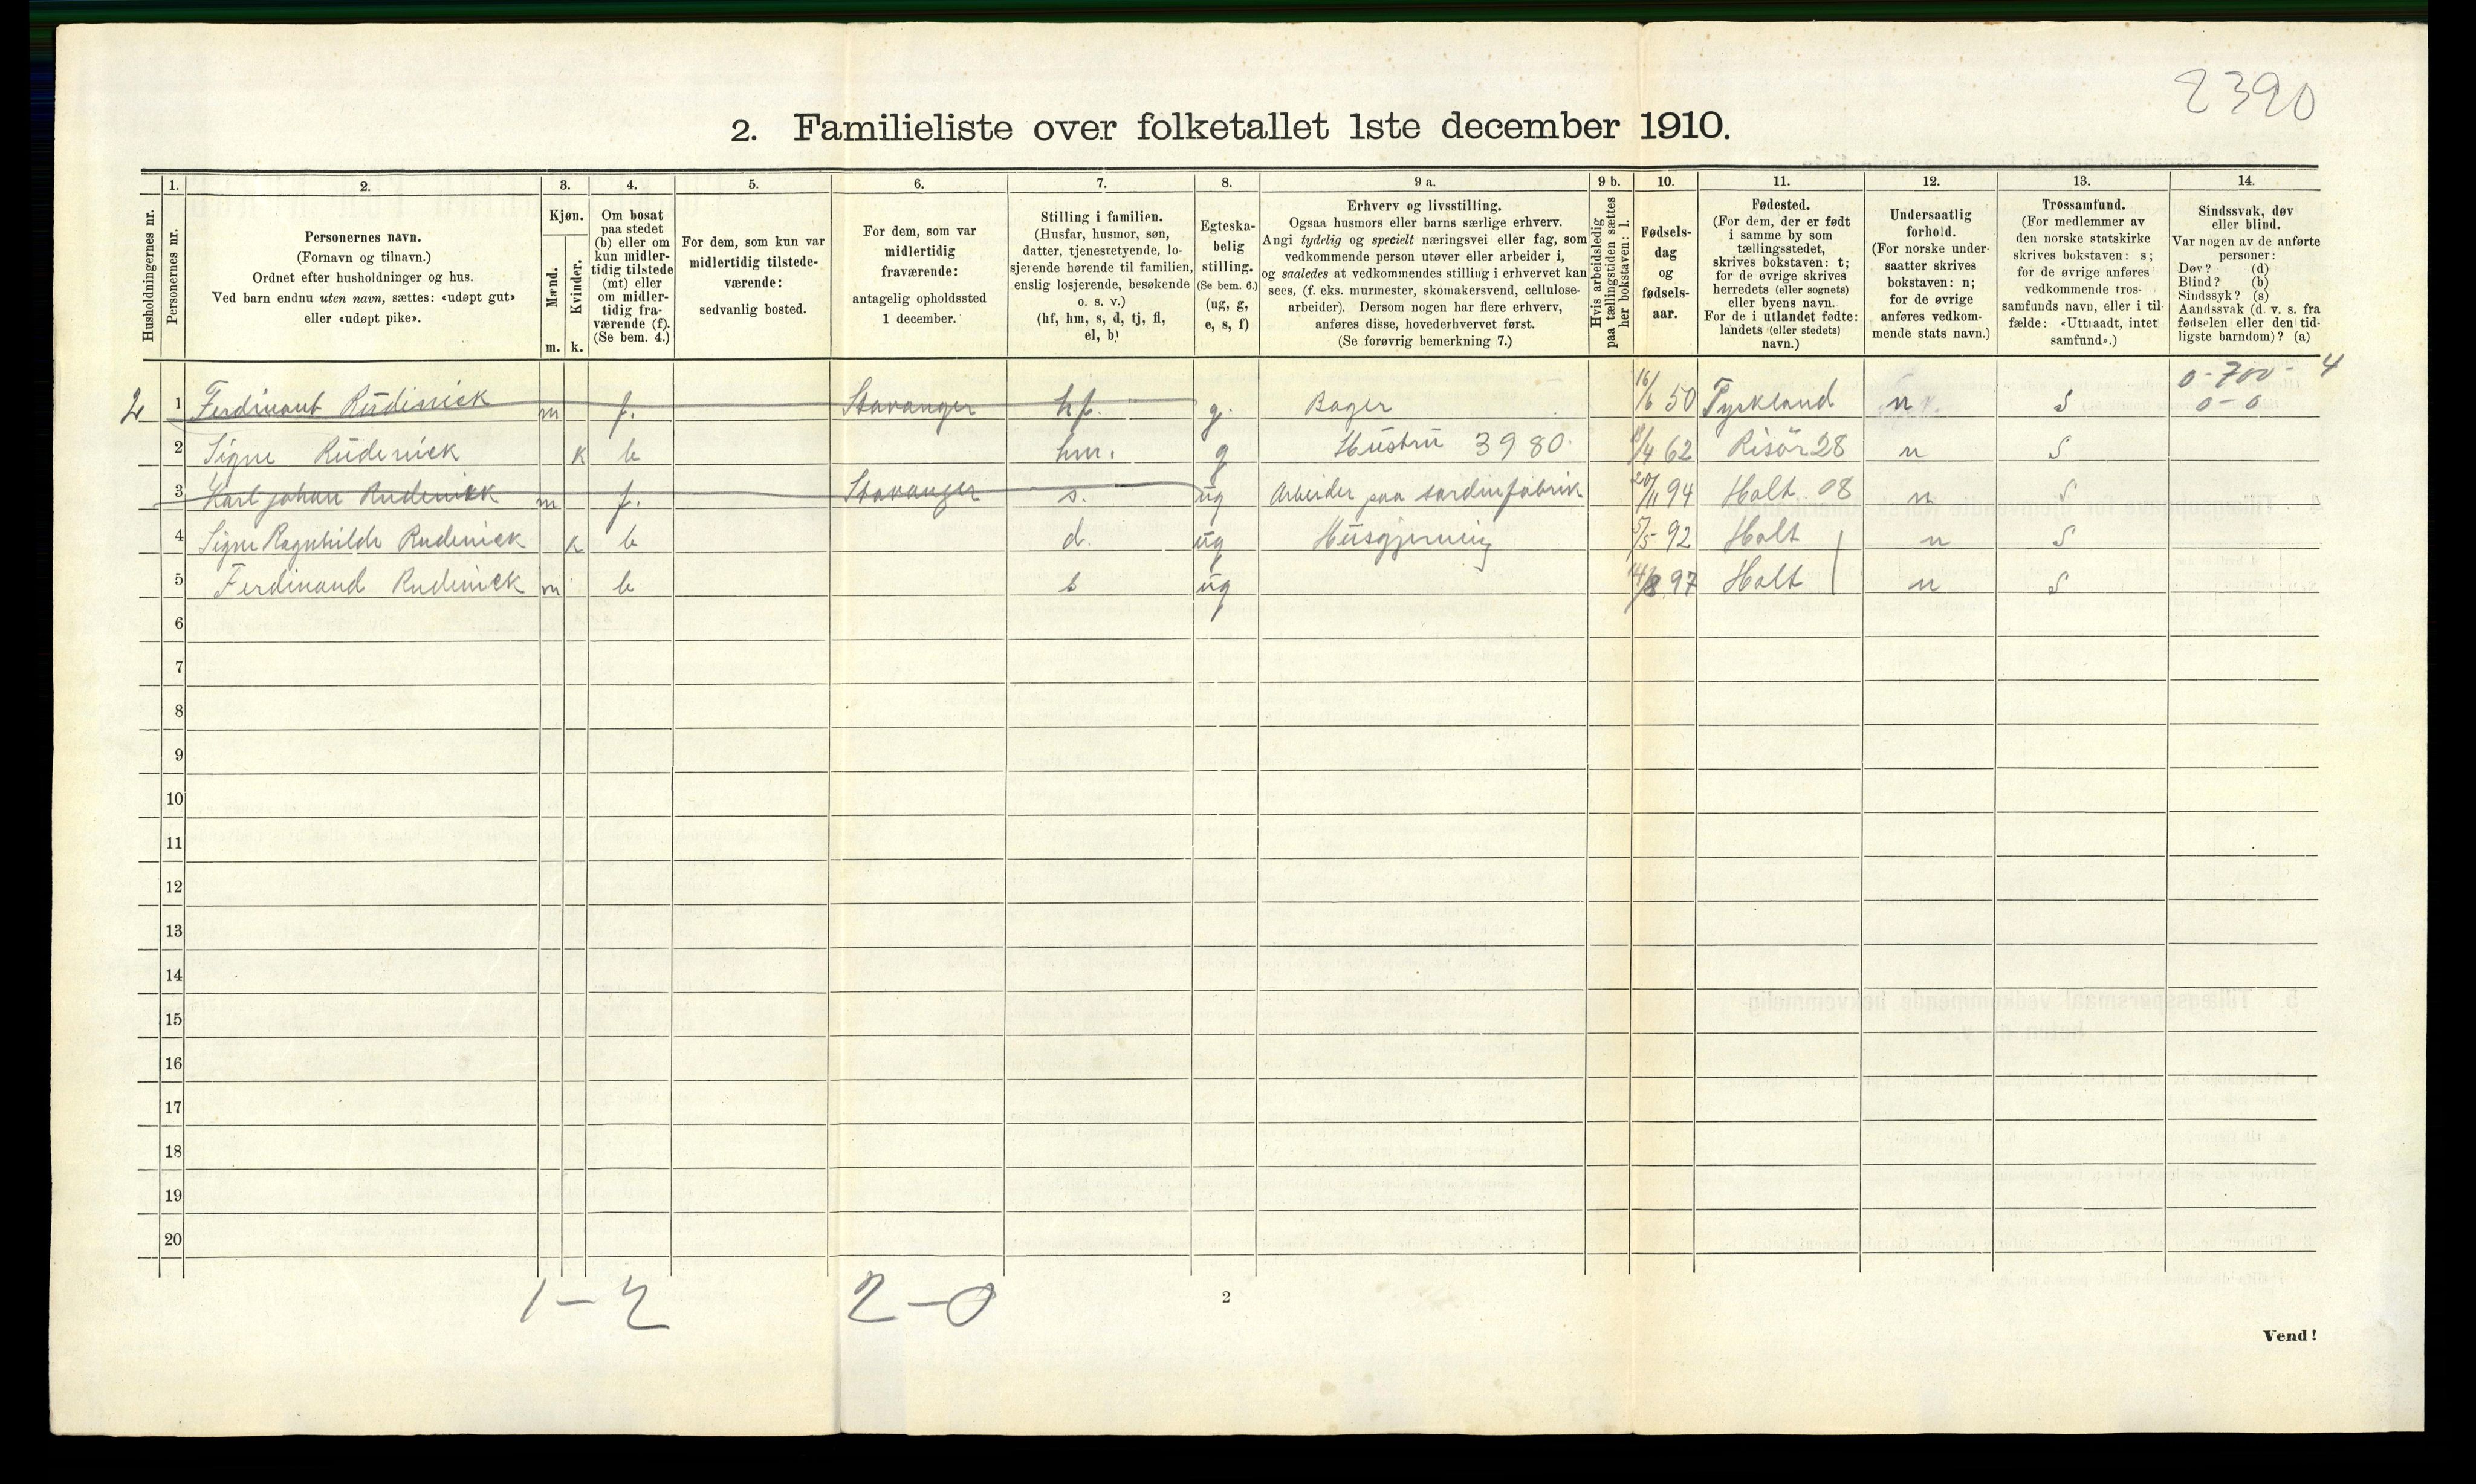 2390
2. Familieliste over folketallet 1ste december 1910.
Husholdningernes nr.
1. Personernes nr.
2. Personernes navn.
(Fornavn og tilnavn.)
Ordnet efter husholdninger og hus.
Ved barn endnu uten navn, sættes: «udøpt gut»
eller «udøpt pike».
3. Kjøn.
Mænd. m.
Kvinder. k.
4. Om bosat
paa stedet
(b) eller om
kun midler-
tidig tilstede
(mt) eller
om midler-
tidig fra-
værende (f).
(Se bem. 4.)
5. For dem, som kun var
midlertidig tilstede-
værende:
sedvanlig bosted.
6. For dem, som var
midlertidig
fraværende:
antagelig opholdssted
1 december.
7. Stilling i familien.
(Husfar, husmor, søn,
datter, tjenestetyende, lo-
sjerende hørende til familien,
enslig losjerende, besøkende
o. s. v.)
(hf, hm, s, d, tj, fl,
el, b)
8. Egteska-
belig
stilling.
(Se bem. 6.)
(ug, g,
e, s, f)
9 a. Erhverv og livsstilling.
Ogsaa husmors eller barns særlige erhverv.
Angi tydelig og specielt næringsvei eller fag, som
vedkommende person utøver eller arbeider i,
og saaledes at vedkommendes stilling i erhvervet kan
sees, (f. eks. murmester, skomakersvend, cellulose-
arbeider). Dersom nogen har flere erhverv,
anføres disse, hovederhvervet først.
(Se forøvrig bemerkning 7.)
9 b. Hvis arbeidsledig
paa tællingstiden sættes
her bokstaven: l.
10. Fødsels-
dag
og
fødsels-
aar.
11. Fødested.
(For dem, der er født
i samme by som
tællingsstedet,
skrives bokstaven: t;
for de øvrige skrives
herredets (eller sognets)
eller byens navn.
For de i utlandet fødte:
landets (eller stedets)
navn.)
12. Undersaatlig
forhold.
(For norske under-
saatter skrives
bokstaven: n;
for de øvrige
anføres vedkom-
mende stats navn.)
13. Trossamfund.
(For medlemmer av
den norske statskirke
skrives bokstaven: s;
for de øvrige anføres
vedkommende tros-
samfunds navn, eller i til-
fælde: «Uttraadt, intet
samfund».)
14. Sindssvak, døv
eller blind.
Var nogen av de anførte
personer:
Døv? (d)
Blind? (b)
Sindssyk? (s)
Aandssvak (d. v. s. fra
fødselen eller den tid-
ligste barndom)? (a)
0-700- 4
2 1 Ferdinant Rüdinick m f. Stavanger hf. g. Bager 16/6 50 Tyskland n s 0-0
2 Signe Rüdenick k b hm. g Hustru 3980. 18/4 62 Risör 28 n s
3 Karl Johan Rudenick m f. Stavanger s. ug Arbeider paa sardinfabrik 20/11 94 Holt 08 n s
4 Signe Ragnhilde Rudenick k b d. ug Husgjerning 5/5-92 Holt n s
5 Ferdinand Rudenick m b s ug 14/8 97 Holt n s
6
7
8
9
10
11
12
13
14
15
16
17
18
19
20
1-2 2-0
2
Vend!